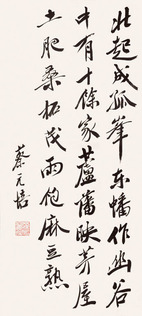 北起成孤峯東幡作幽谷
中有十餘家蘆藩映茅屋
土肥桑柘茂雨飽麻豆熟
蔡元培